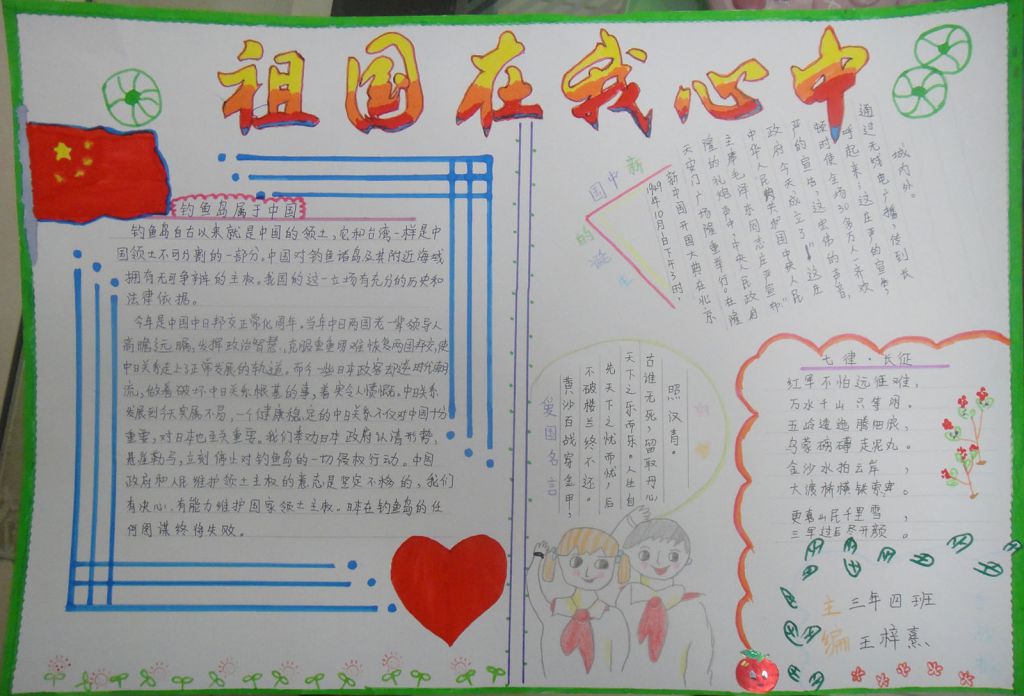 祖国在我心中
钓鱼岛属于中国
钓鱼岛自古以来就是中国的领土,它和台湾一样是中
国领土不可分割的一部分。中国对钓鱼诸岛及其附近海域
拥有无可争辩的主权。我国的这一立场有充分的历史和
法律依据。
今年是中国中日邦交正常化周年。当年中日两国老一辈领导人
高瞻远瞩,发挥政治智慧,克服重重困难恢复两国邦交,使
中日关系走上了正常发展的轨道。而今一些日本政客却逆时代潮
流,做着破坏中日关系根基的事,着实令人愤慨。中日关系
发展到今天实属不易,一个健康稳定的中日关系不仅对中国十分
重要,对日本也至关重要。我们奉劝日本政府认清形势,
悬崖勒马,立刻停止对钓鱼岛的一切侵权行动。中国
政府和人民维护领土主权的意志是坚定不移的,我们
有决心、有能力维护国家领土主权。日本在钓鱼岛的任
何图谋终将失败。
新中国的诞生
新中国开国大典在北京
1949年10月1日下午3时,
天安门广场隆重举行。在隆
隆的礼炮声中,中央人民政府
主席毛泽东同志庄严宣布“
中华人民共和国中央人民
政府今天成立了”这庄
严的宣告,这宏伟的声音,
顿时使全场30多万人一齐欢
呼起来;这庄严的宣告,
通过无线电广播,传到长
城内外。
爱国名言
古谁无死,留取丹心
照汉青。
天下之乐而乐。人生自
先天下之忧而忧,后
不破楼兰终不还。
黄沙百战穿金甲,
七律·长征
红军不怕远征难,
万水千山只等闲。
五岭逶迤腾细浪,
乌蒙磅礴走泥丸。
金沙水拍云岸,
大渡桥横铁索寒。
更喜山民千里雪,
三军过后尽开颜。
主编
三年四班
王梓熹